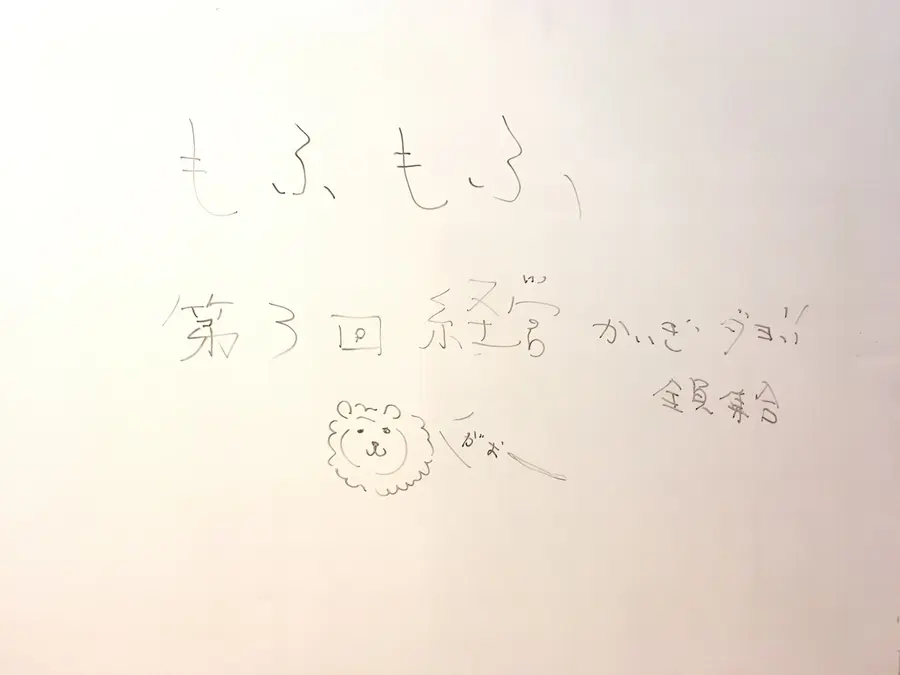 もふもふ、
第3回経営かいぎ
全員集合
がお